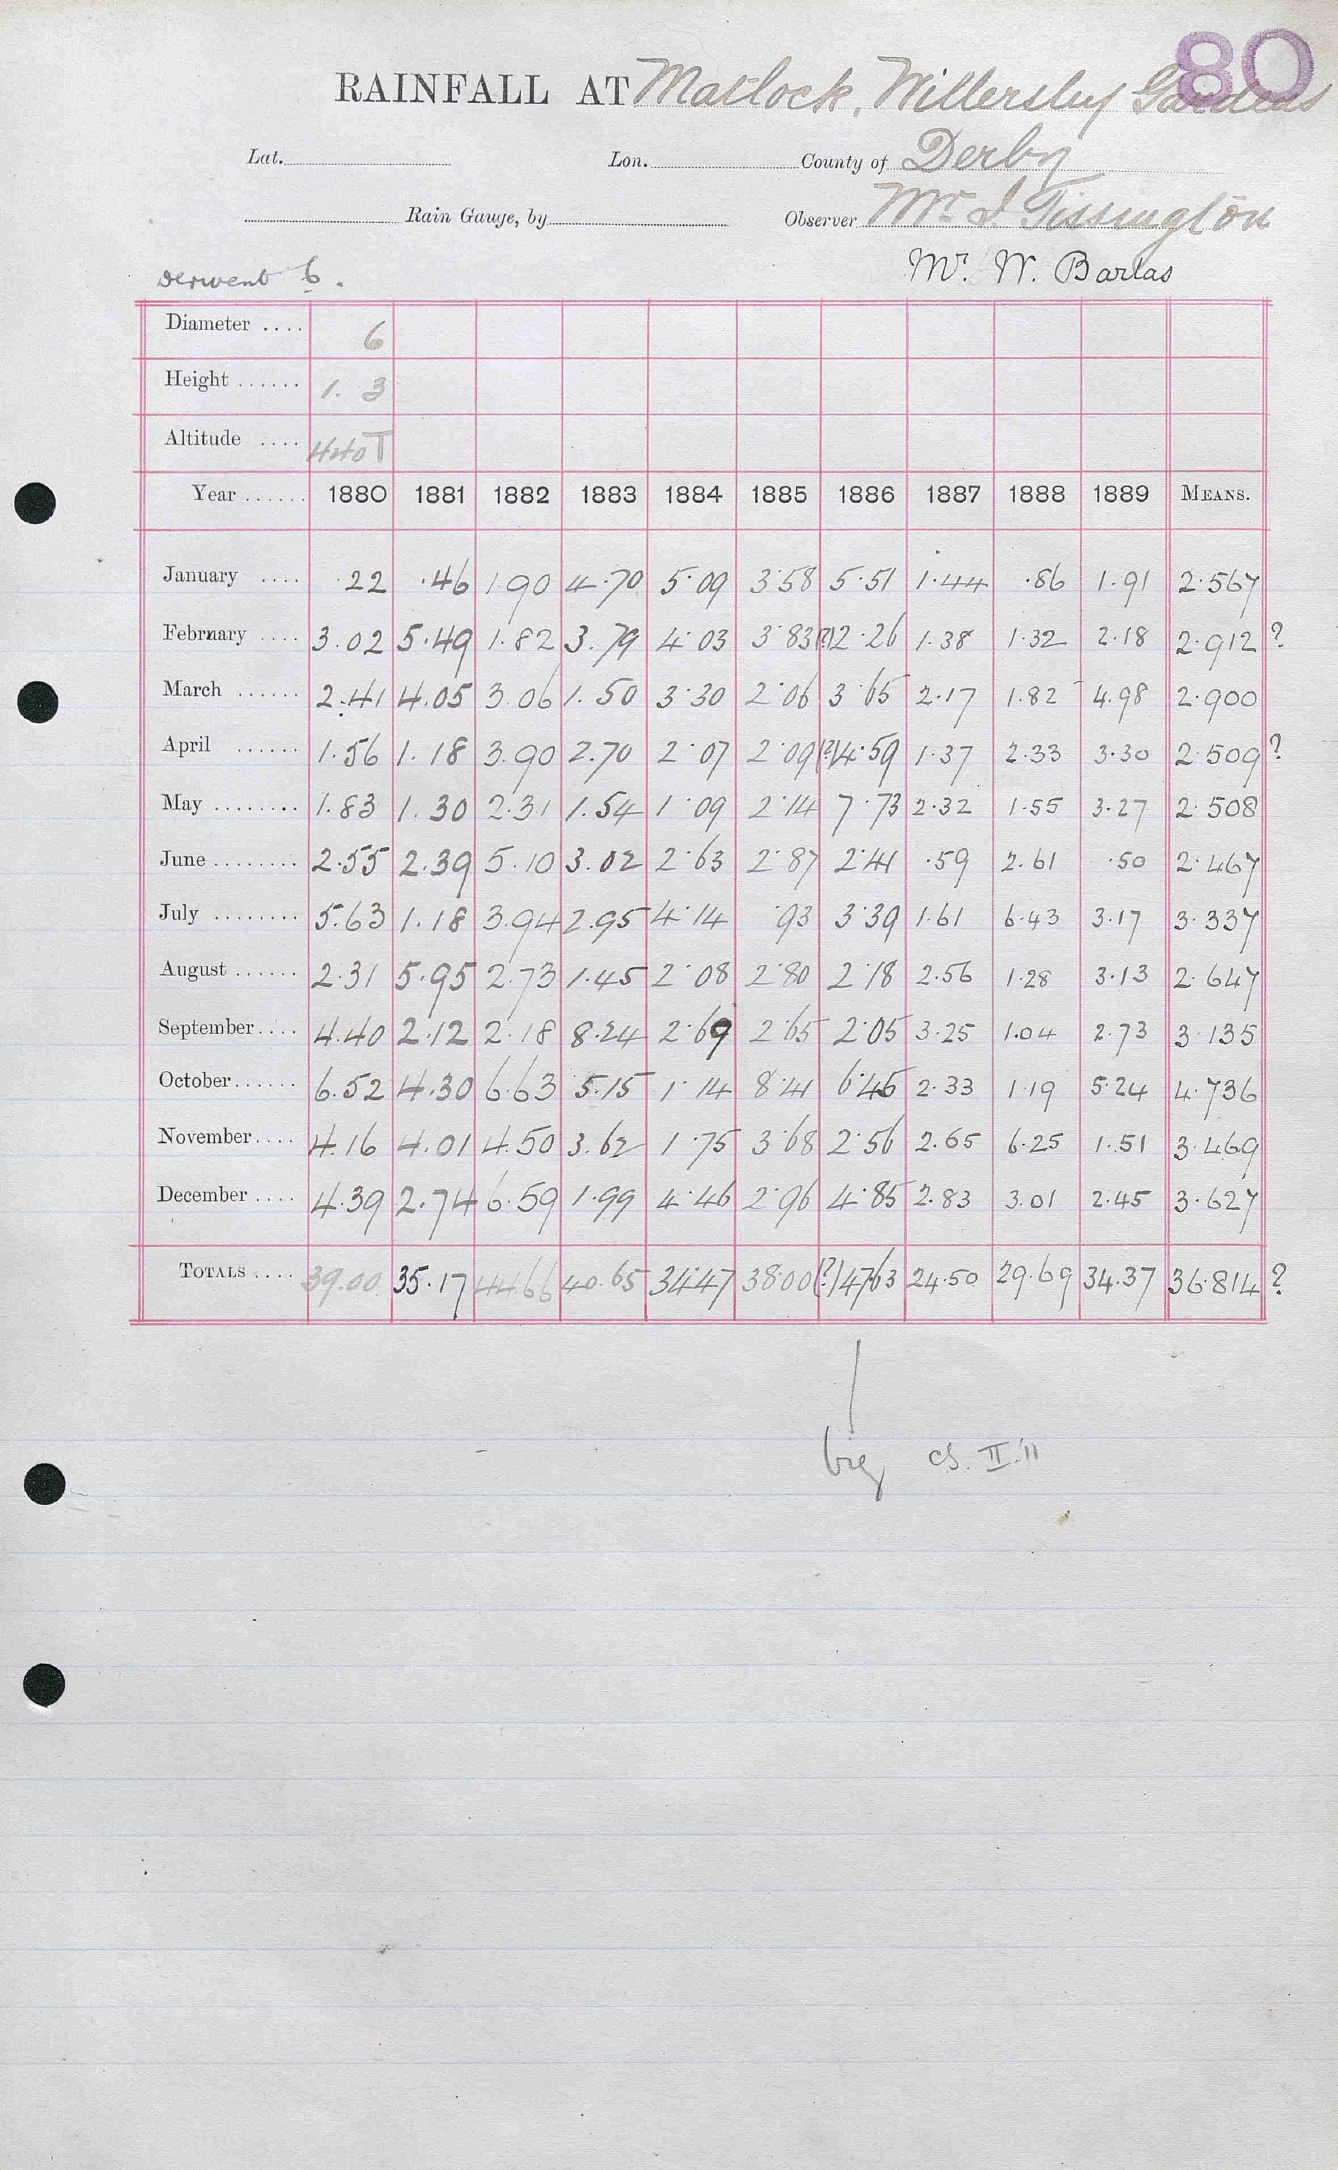 80
RAINFALL AT Matlock, Willersley Gardens
Lat. Lon. County of Derby
Rain Gauge, by Observer Mr. I Tissington
Derwent 6. Mr. W. Barlas
Diameter .... 6
Height ...... 1. 3
Altitude .... 440T
Year ...... 1880 1881 1882 1883 1884 1885 1886 1887 1888 1889 MEANS.
January .... .22 .46 1.90 4.70 5.09 3.58 5.51 1.44 .86 1.91 2.567
February .... 3.02 5.49 1.82 3.79 4.03 3.83 (?)2.26 1.38 1.32 2.18 2.912 ?
March ...... 2.41 4.05 3.06 1.50 3.30 2.06 3.65 2.17 1.82 4.98 2.900
April ...... 1.56 1.18 3.90 2.70 2.07 2.09 (?)4.59 1.37 2.33 3.30 2.509 ?
May ........ 1.83 1.30 2.31 1.54 1.09 2.14 7.73 2.32 1.55 3.27 2.508
June ........ 2.55 2.39 5.10 3.02 2.63 2.87 2.41 .59 2.61 .50 2.467
July ........ 5.63 1.18 3.94 2.95 4.14 .93 3.39 1.61 6.43 3.17 3.337
August ...... 2.31 5.95 2.73 1.45 2.08 2.80 2.18 2.56 1.28 3.13 2.647
September .... 4.40 2.12 2.18 8.24 2.69 2.65 2.05 3.25 1.04 2.73 3.135
October ...... 6.52 4.30 6.63 5.15 1.14 8.41 6.45 2.33 1.19 5.24 4.736
November .... 4.16 4.01 4.50 3.62 1.75 3.68 2.56 2.65 6.25 1.51 3.469
December .... 4.39 2.74 6.59 1.99 4.46 2.96 4.85 2.83 3.01 2.45 3.627
TOTALS .... 39.00 35.17 44.66 40.65 34.47 38.00 (?)47.63 24.50 29.69 34.37 36.814 ?
big cs. II.'11